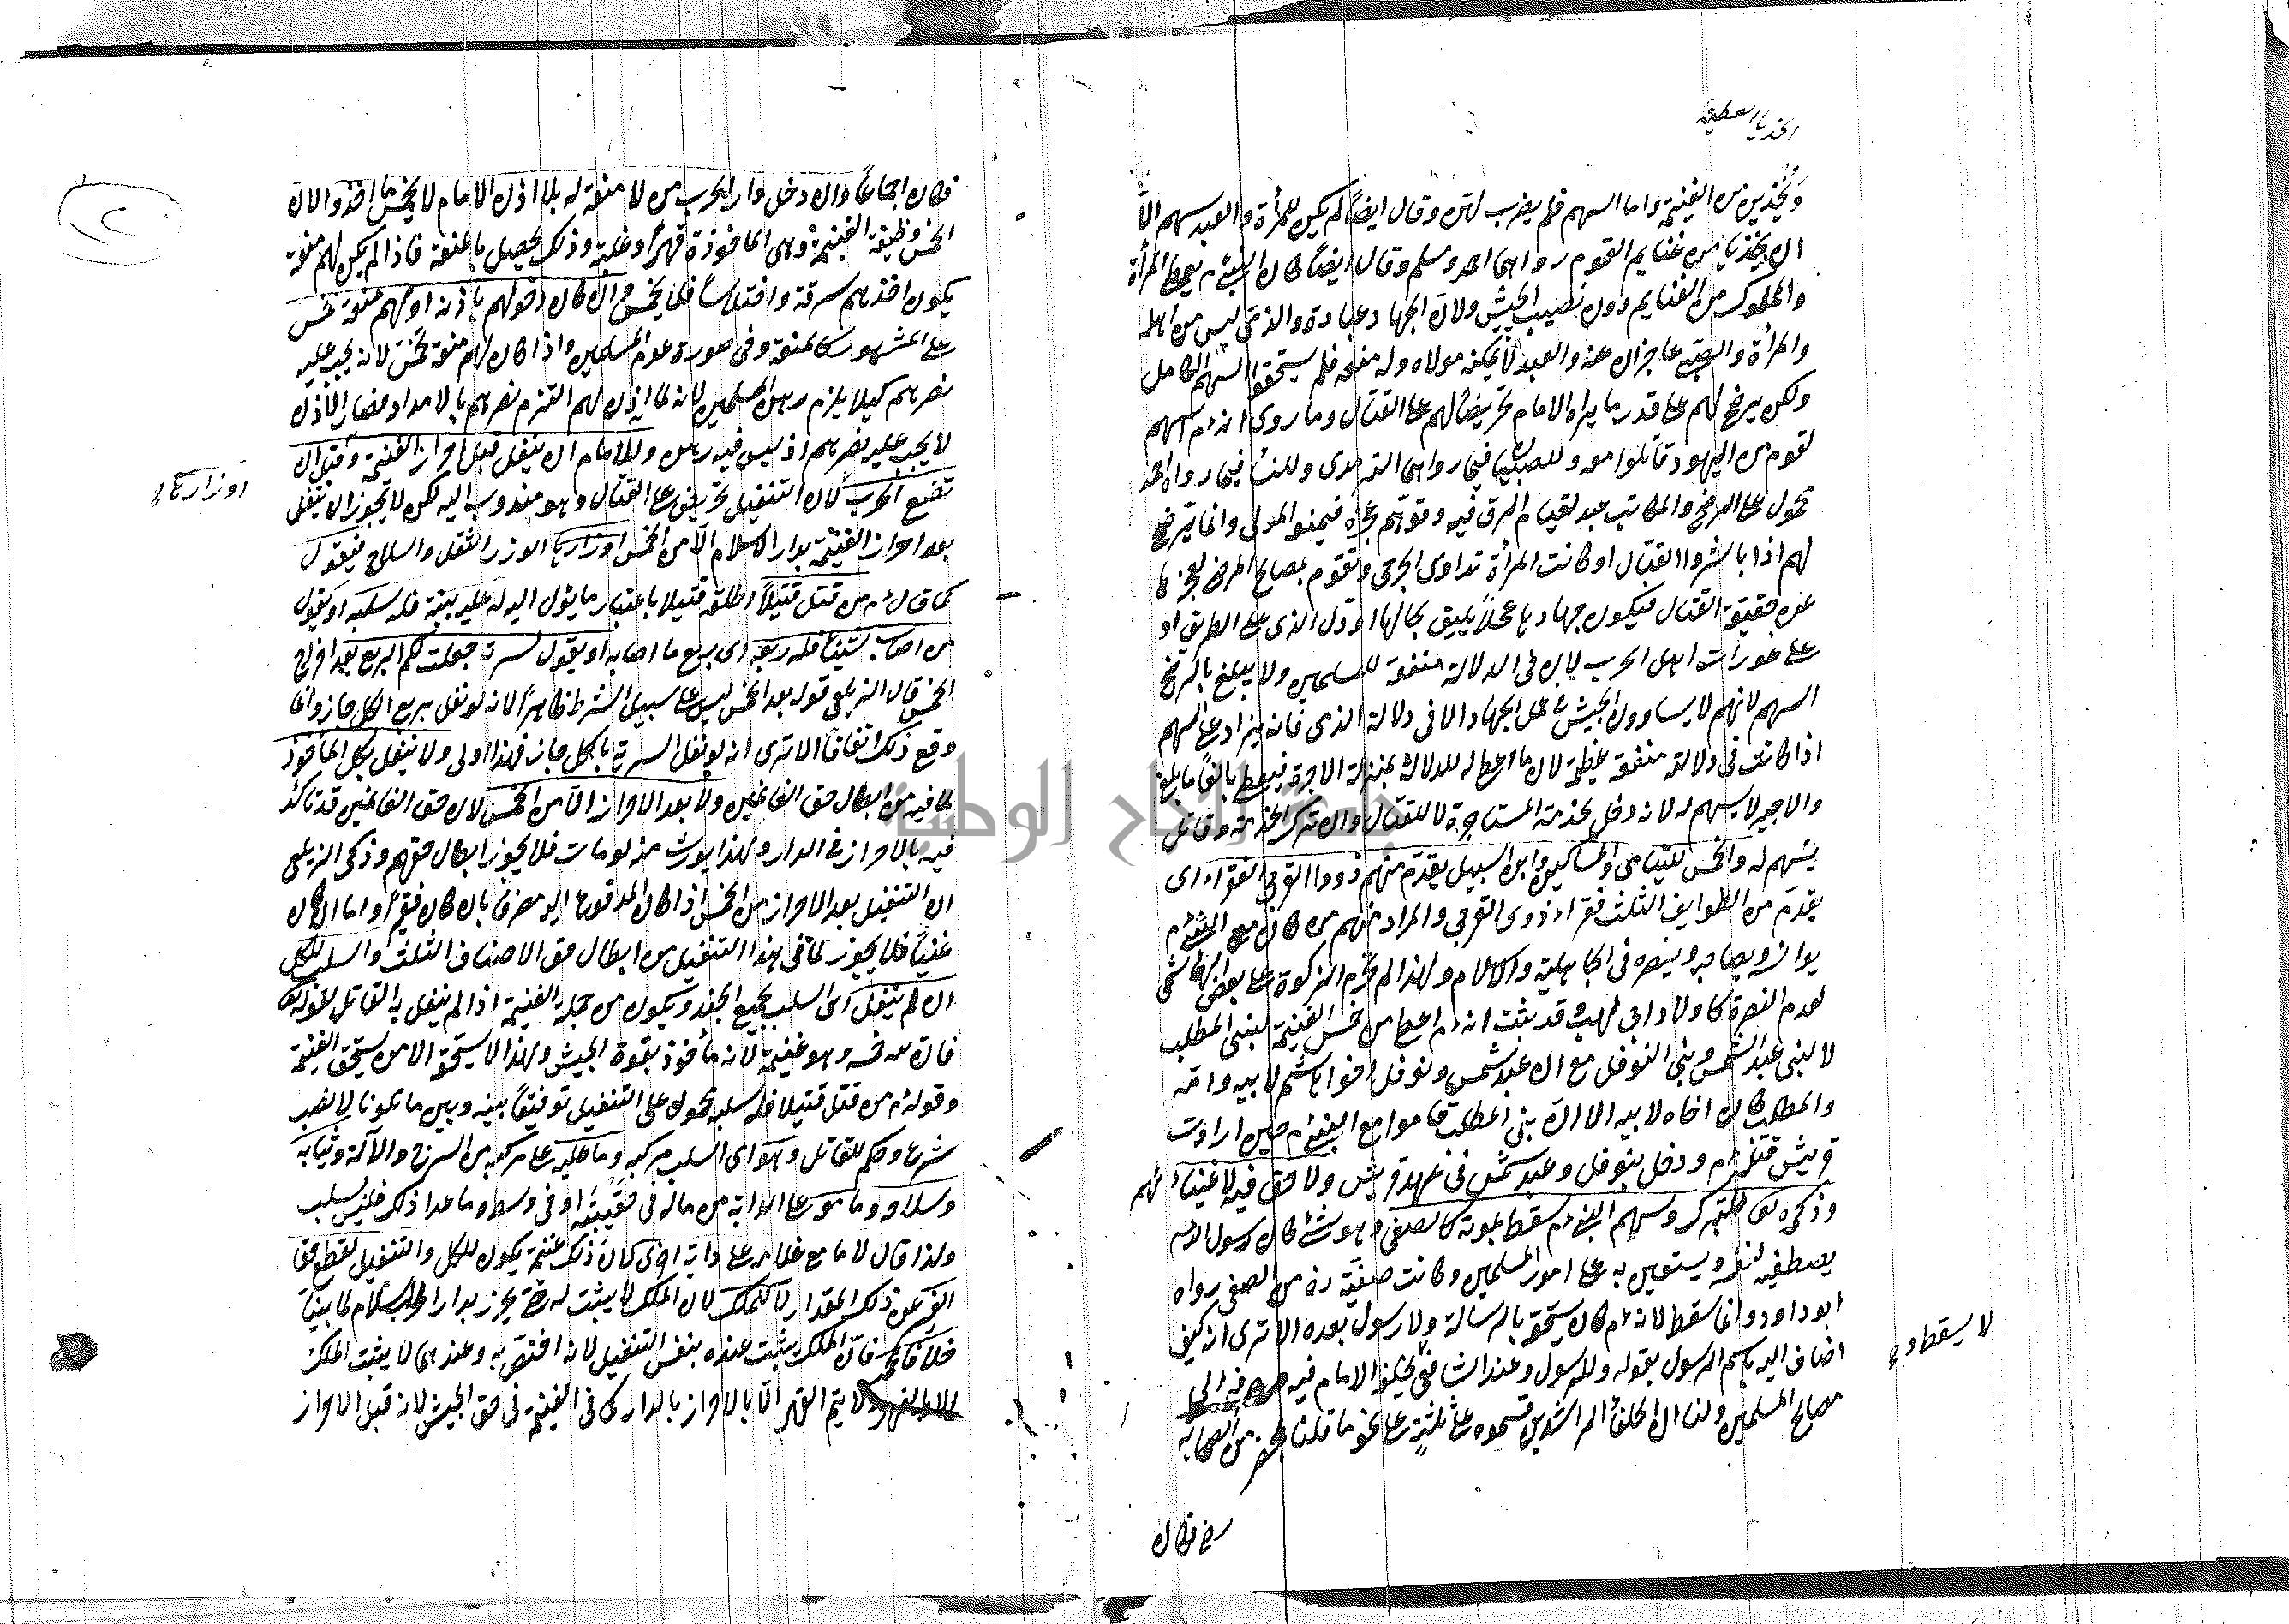 الحذيا العطية
ويحذين من الغنيمة واما السهم فلم يضرب لهن وقال ايضا لم يكن للمرأة والعبد سهم الا
ان يحذيا من غنايم القوم رواهما احمد ومسلم وقال ايضا كان النبي ءم يعطي المرأة
والمملوك من الغنايم دون نصيب الجيش ولان الجهاد عبادة والذمي ليس من اهله
والمرأة والصبي عاجزان عنه والعبد لا يمكنه مولاه وله منعه فلم يستحقوا السهم الكامل
ولكن يرضخ لهم على قدر ما يراه الامام تحريضا لهم على القتال وما روى انه ءم اسهم
لقوم من اليهود قاتلوا معه وللصبيان فيما رواهما الترمذى وللنساء فيما رواه احمد
محمول على الرضخ والمكاتب عبد لقيام الرق فيه وتوهم عجزه فيمنعه المولى وانما يرضخ
لهم اذا باشروا القتال او كانت المرأة تداوى الجرحى وتقوم بمصالح المرضى لعجزها
عن حقيقة القتال فيكون جهادها عملا يليق بحالها او دل الذمى على الطريق او
على عورات اهل الحرب لان فى الدلالة منفعة للمسلمين ولا يبلغ بالرضخ
السهم لانهم لا يساوون الجيش فى عمل الجهاد الا فى دلالة الذمى فانه يزاد على السهم
اذا كانت فى دلالته منفعة عظيمة لان ما اعطى له للدلالة بمنزلة الاجرة فيعطى بالغا ما بلغ
والاجير لا يسهم له لانه دخل لخدمة المستأجرة لا للقتال وان ترك الخدمة وقاتل
يسهم له والخمس لليتامى والمساكين وابن السبيل يقدم منهم ذووا القربى الفقراء اى
يقدم من الطوايف الثلث فقراء ذوى القربى والمراد منهم من كان مع النبى ءم
يوانسه ويصاحبه وينصره فى الجاهلية والاسلام ولهذا لم تحرم الزكوة على بعض الهاشمى
لعدم النصرة كاولاد ابى لهب وقد يثبت انه ءم اعطى من خمس الغنيمة لبنى المطلب
لا لبنى عبد الشمس وبنى النوفل مع ان عبد شمس ونوفل اخوا هاشم لابيه وامه
والمطلب كان اخاه لابيه الا ان بنى المطلب قاموا مع النبى ءم حين ارادت
قريش قتله ءم ودخل بنو نوفل وعبد شمس فى عهد قريش ولا حق فيه لاغنياءهم
وذكره تعا للتبرك وسهم النبى ءم سقط بموته كالصفى وهو شئ كان رسول الله
يصطفيه لنفسه ويستعين به على امور المسلمين وكانت صفية رض من الصفى رواه
ابو داود وانما سقط لانه ءم كان يستحقه بالرسالة ولا رسول بعده الا ترى انه كيف
لا يسقط
اضاف اليه باسم الرسول بقوله وللرسول وعند الشافعى يخلفه الامام فيه صرفه الى
مصالح المسلمين ولنا ان الخلفاء الراشدين قسموه على ثلثة على نحو ما قلنا بمحضر من الصحابة
رض فكان
فكان اجماعا وان دخل دار الحرب من لا منعة له بلا اذن الامام لا يخمس ما اخذوا لان
الخمس وظيفة الغنيمة وهى المأخوذة قهرا وغلبة وذلك يحصل بالمنعة فاذا لم يكن لهم منعة
يكون اخذهم سرقة واختلاسا فلا يخمس وان كان دخولهم باذنه او لهم منعة خمس
على المشهور كالمنعة وفى صورة علم المسلمين واذا كان لهم منعة تخمس لانه يجب عليه
نصرهم كيلا يلزم وهن المسلمين لانه لما اذن لهم التزم نصرهم بالامداد فصار الاذن
لا يجب عليه نصرهم اذ ليس فيه وهن وللامام ان ينفل قبل احراز الغنيمة وقبل ان
اوزارها
تضع الحرب لان التنفيل تحريض على القتال وهو مندوب اليه لكن لا يجوز ان ينفل
بعد احراز الغنيمة بدار الاسلام الا من الخمس اوزارها الوزر الثقل والسلاح فيقول
كما قال ءم من قتل قتيلا اطلقه قتيلا باعتبار ما يئول اليه له عليه بينة فله سلبه او يقول
من اصاب شيئا فله ربعه اى ربع ما اصابه او يقول لسرية جعلت لكم الربع بعد اخراج
الخمس قال الزيلعى قوله بعد الخمس ليس على سبيل الشرط ظاهرا لانه لو نفل بربع الكل جاز وانما
وقع ذلك اتفاقا الا ترى انه لو نفل السرية بالكل جاز فهذا اولى ولا ينفل بكل المأخوذ
لما فيه من ابطال حق الغانمين ولا بعد الاحراز الا من الخمس لان حق الغانمين قد تأكد
فيه بالاحراز فى الدار ولهذا يورث منه لو مات فلا يجوز ابطال حقهم وذكر الزيلعى
ان التنفيل بعد الاحراز من الخمس اذا كان المدفوع اليه مصرفا بان كان فقيرا واما ان كان
غنيا فلا يجوز لما فى هذا التنفيل من ابطال حق الاصناف الثلث والسلب للكل
ان لم ينفل اى السلب لجميع الجند ويكون من جملة الغنيمة اذا لم ينفل به القاتل لقوله تعا
فان لله خمسه وهو غنيمة لانه مأخوذ بقوة الجيش ولهذا لا يستحقه الا من يستحق الغنيمة
وقوله ءم من قتل قتيلا فله سلبه محمول على التنفيل توفيقا بينه وبين ما تلونا لا نصب
شرعا وحكم للقاتل وهو اى السلب مركبه وما عليه على مركبه من السرج والآلة وثيابه
وسلاحه وما معه على الدابة من ماله فى حقيبته او فى وسطه وما عدا ذلك فليس بسلب
ولذا قال لا ما مع غلامه على دابة اخرى كان ذلك غنيمة يكون للكل والتنفيل لقطع حق
الغير عن ذلك المقدار لا للتملك لان الملك لا يثبت له حتى يحرز بدار الاسلام لما بينا
خلافا لمحمد فان الملك يثبت عنده بنفس التنفيل لانه اختص به وعندهما لا يثبت الملك
لا يتم القهر الا بالاحراز بالدار كما فى الغنيمة فى حق الجيش لانه قبل الاحراز
جامعة النجاح الوطنية